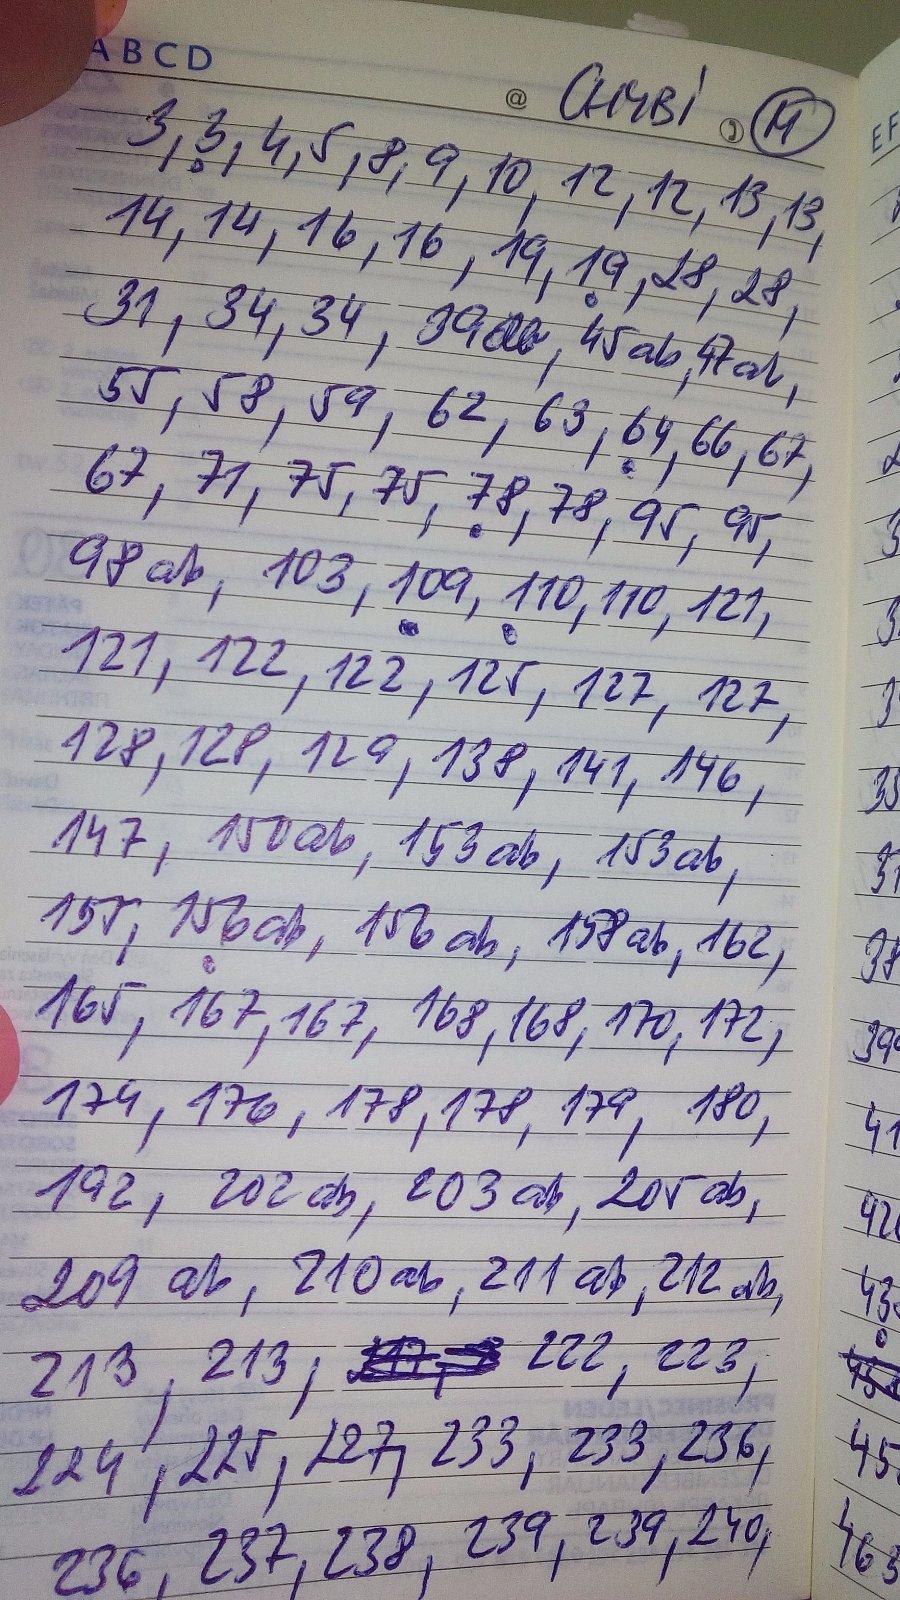 ABCD
@ CHYBÍ M
3, 3, 4, 5, 8, 9, 10, 12, 12, 13, 13,
14, 14, 16, 16, 19, 19, 28, 28,
31, 34, 34, 39, 45ab, 47ab,
55, 58, 59, 62, 63, 64, 66, 67,
67, 71, 75, 75, 78, 78, 95, 95,
98ab, 103, 109, 110, 110, 121,
121, 122, 122, 125, 127, 127,
128, 128, 129, 138, 141, 146,
147, 150ab, 153ab, 153ab,
155, 156ab, 156ab, 158ab, 162,
165, 167, 167, 168, 168, 170, 172,
174, 176, 178, 178, 179, 180,
192, 202ab, 203ab, 205ab,
209ab, 210ab, 211ab, 212ab,
213, 213, 222, 223,
224, 225, 227, 233, 233, 236,
236, 237, 238, 239, 239, 240,
EF